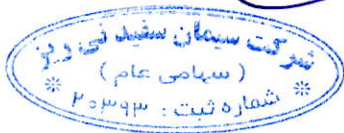 شرکت سیمان سفید نی ریز
( سهامی عام )
شماره ثبت : ۲۰۳۹۳